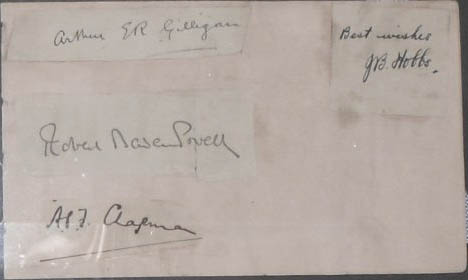 Arthur ER Gilligan
Best wishes
JB. Hobbs.
Robert Baden Powell
A.P.F. Chapman